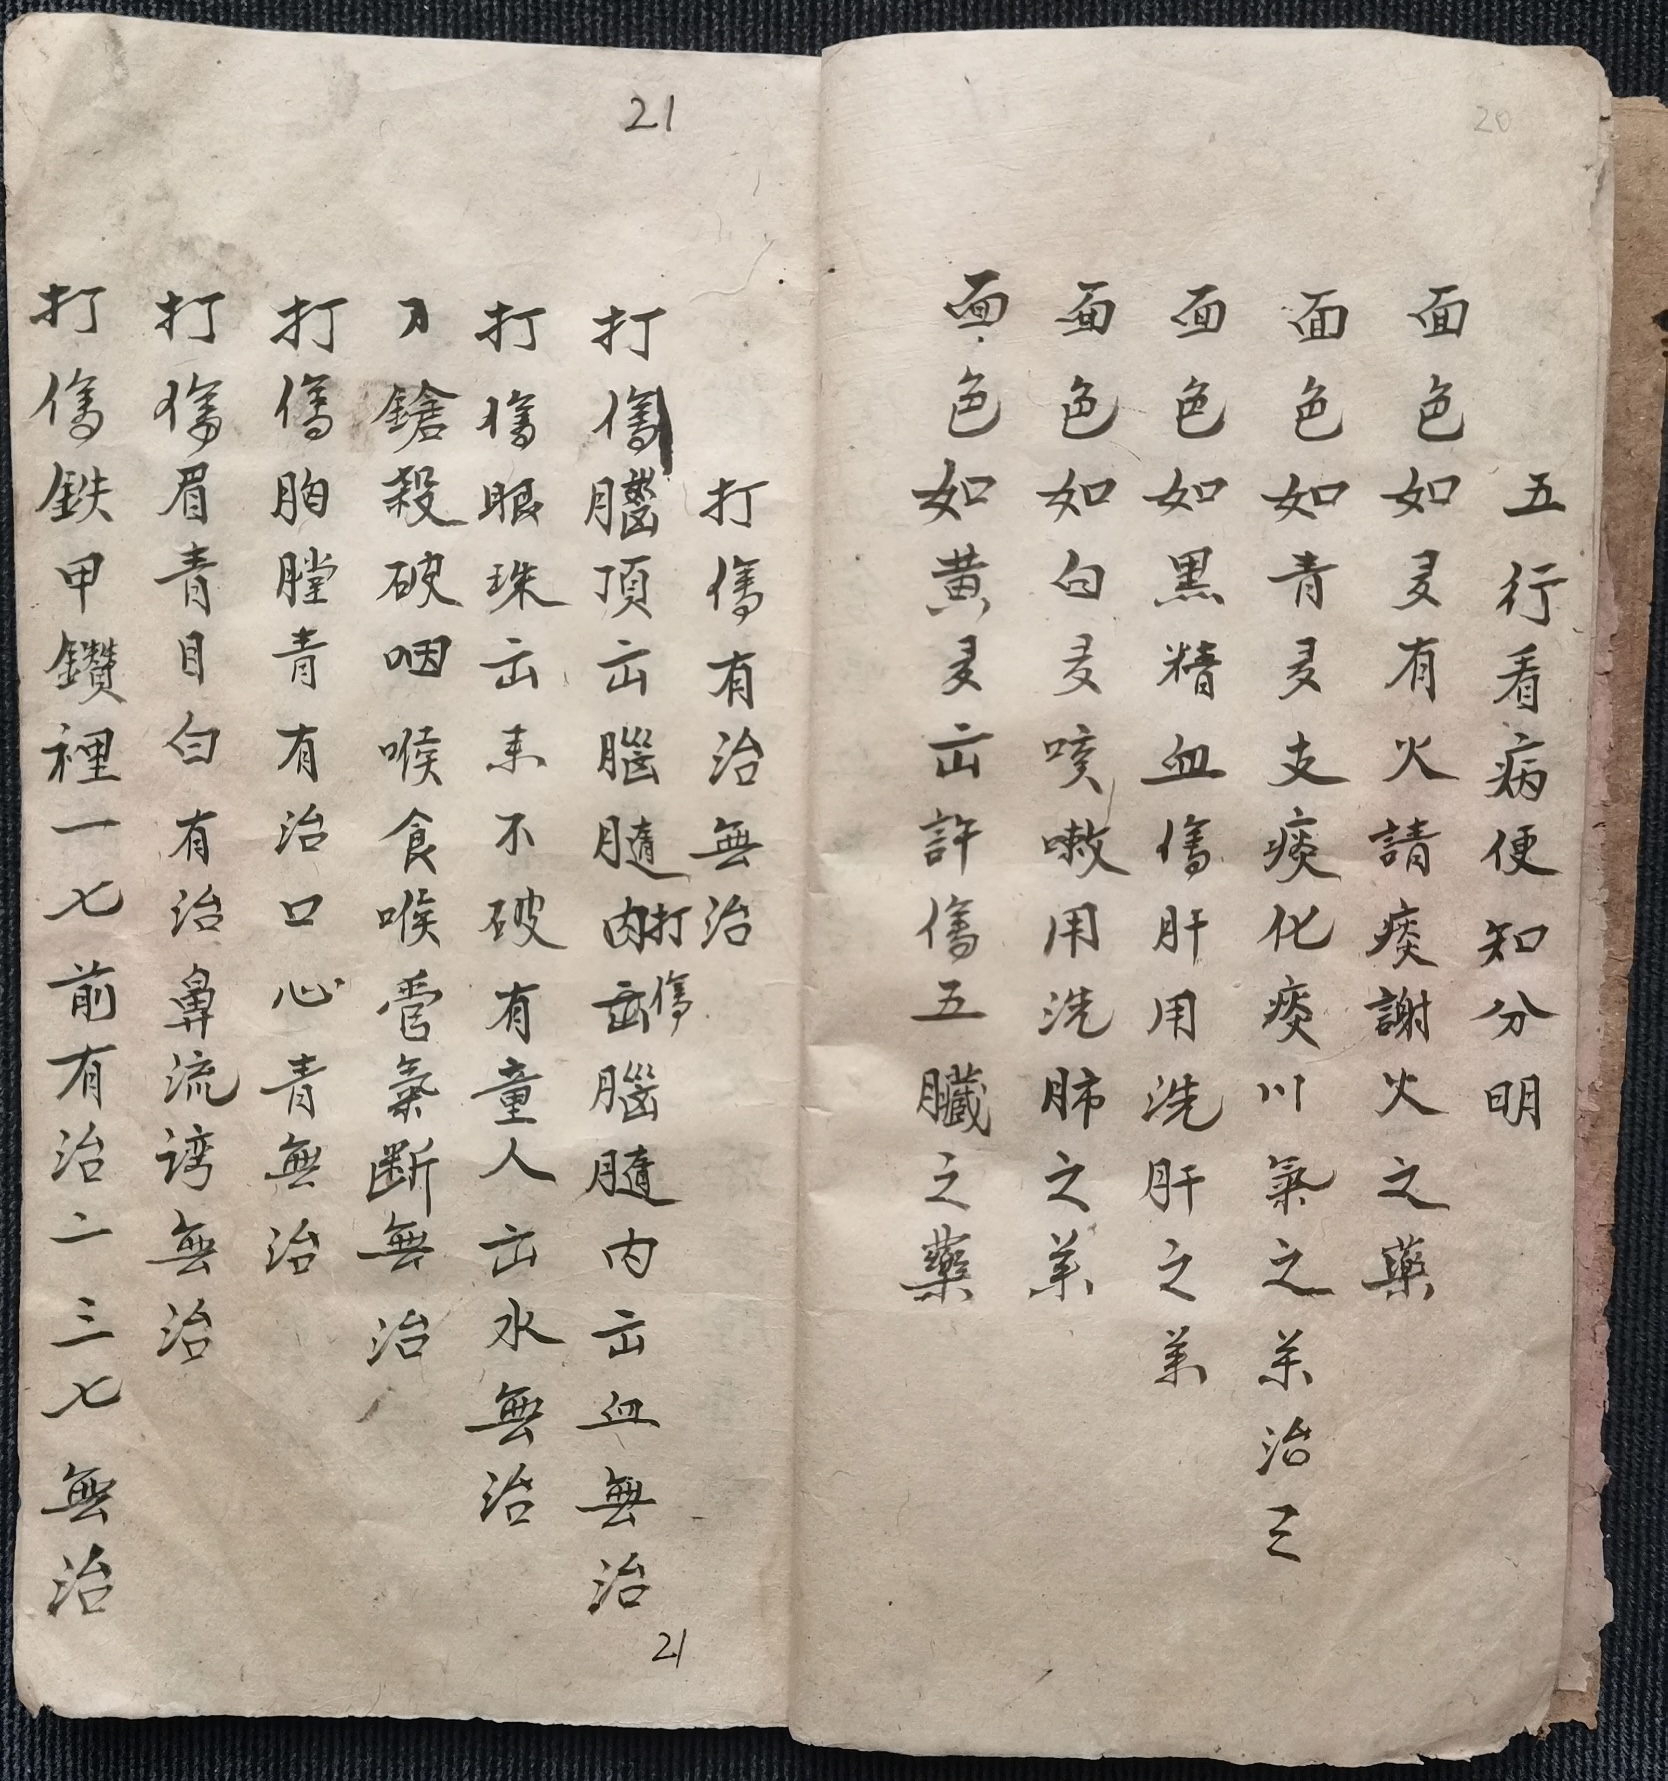 20
五行看病便知分明
面色如㞋有火請痰謝火之藥
面色如青㞋支痰化痰川氣之茉治三
面色如黑精血傷肝用洗肝之茉
面色如白㞋咳嗽用洗肺之茉
面色如黃㞋出許傷五臟之藥
21
打傷有治無治
打傷腦頂出腦髓內打傷出腦髓內出血無治
打傷眼珠出未不破有童人出水無治
刀鎗殺破咽喉食喉管氣斷無治
打傷胸膛青有治口心青無治
打傷眉青目白有治鼻流涝無治
打傷鉄甲鑽裡一七前有治二三七無治
21